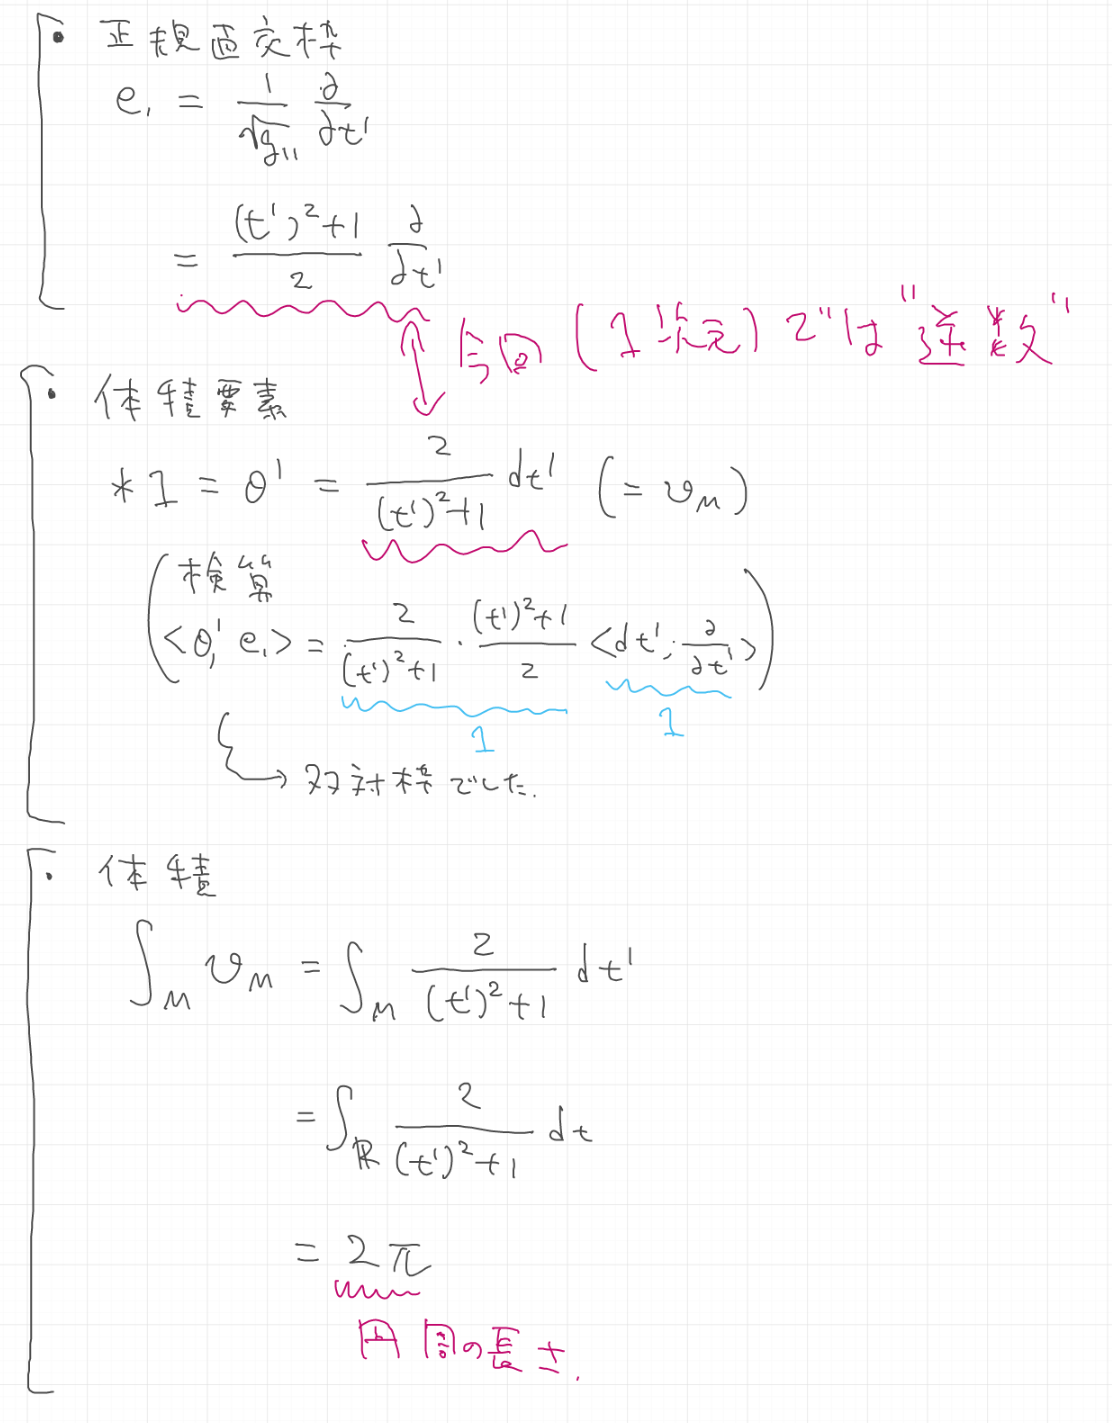 ・ 正規直交枠
e₁ = 1/√g₁₁ ∂/∂t¹
= ((t¹)²+1)/2 ∂/∂t¹
今回 (1次元) では "逆数"
・ 体積要素
*1 = θ¹ = 2/((t¹)²+1) dt¹ (= v_M)
検算
<θ¹, e₁> = 2/((t¹)²+1) · ((t¹)²+1)/2 <dt¹, ∂/∂t¹>
1 1
→ 双対枠でした.
・ 体積
∫_M v_M = ∫_M 2/((t¹)²+1) dt¹
= ∫_ℝ 2/((t¹)²+1) dt
= 2π
円周の長さ.